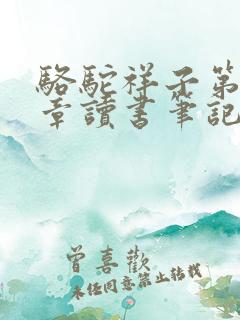 駱駝祥子第
章讀書筆記
曾喜歡
未任同意禁止転載